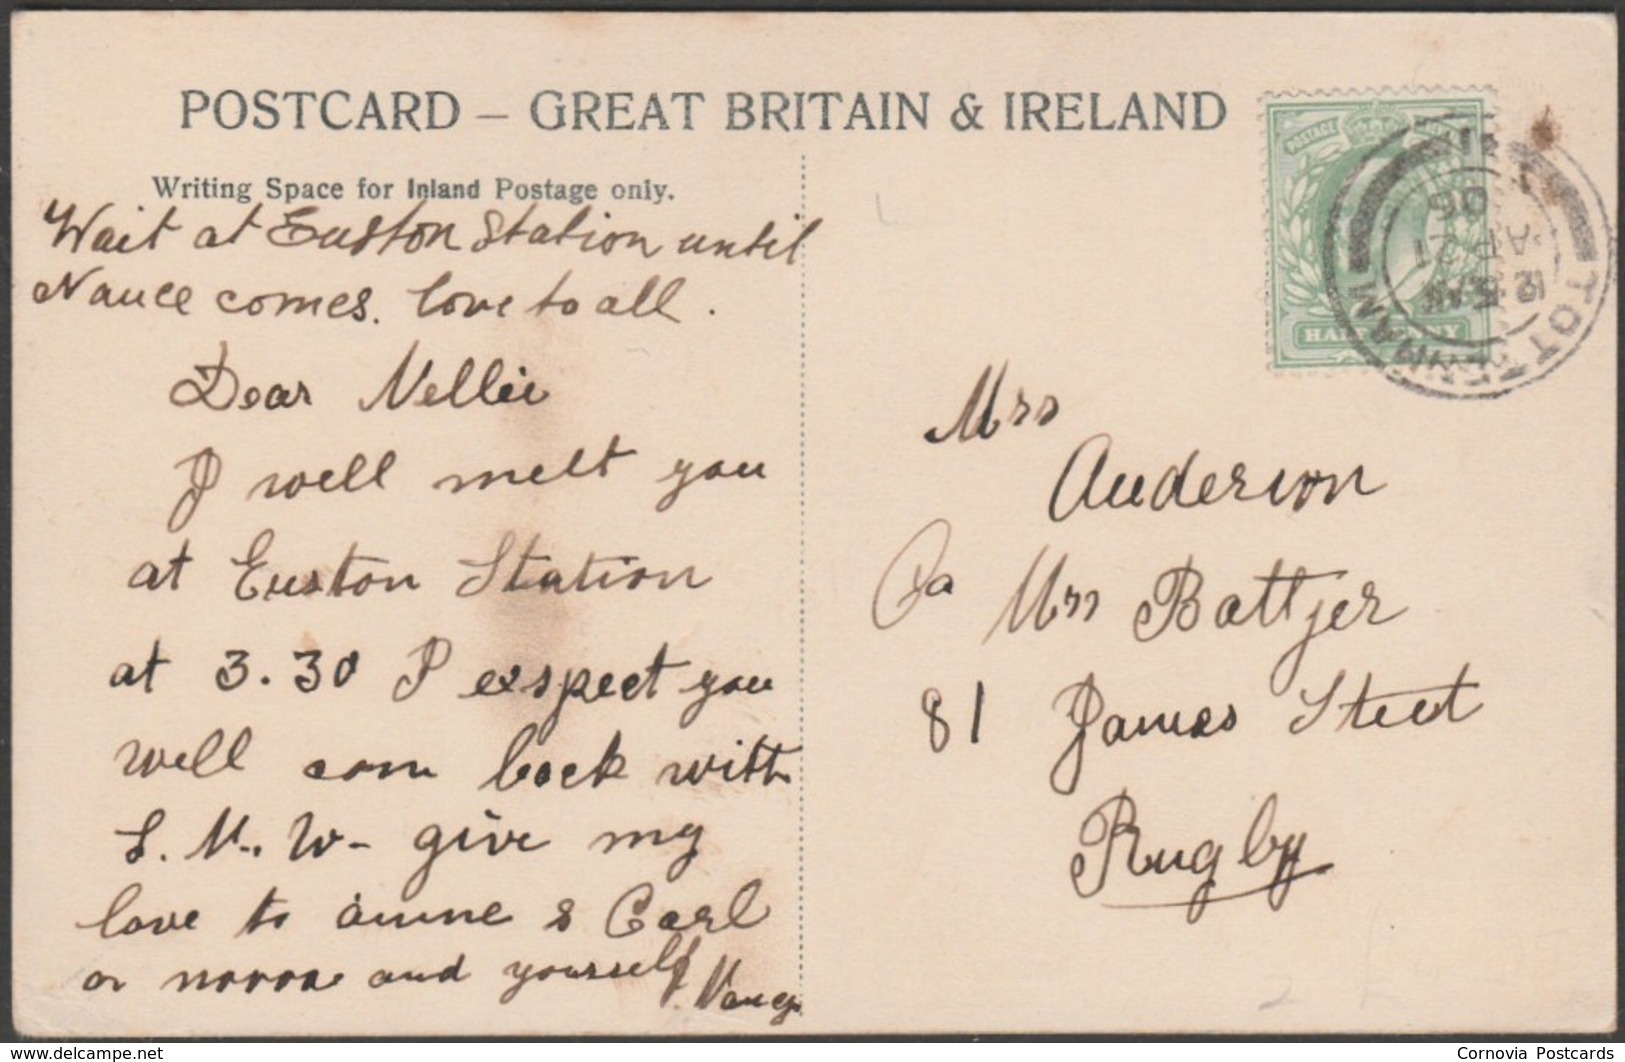 POSTCARD – GREAT BRITAIN & IRELAND
Writing Space for Inland Postage only.
Wait at Euston Station until
Nance comes. love to all.
Dear Nellie
I well melt you
at Euston Station
at 3.30 I exspect you
well com back with
L. N. W- give my
love to & Carl
and yourself
Nancy
Mrs
Anderson
Mrs Battjer
81 James Street
Rugby
TOTTENHAM
12 15 AM
AP 21
06
HALF PENNY
www.delcampe.net
Cornovia Postcards